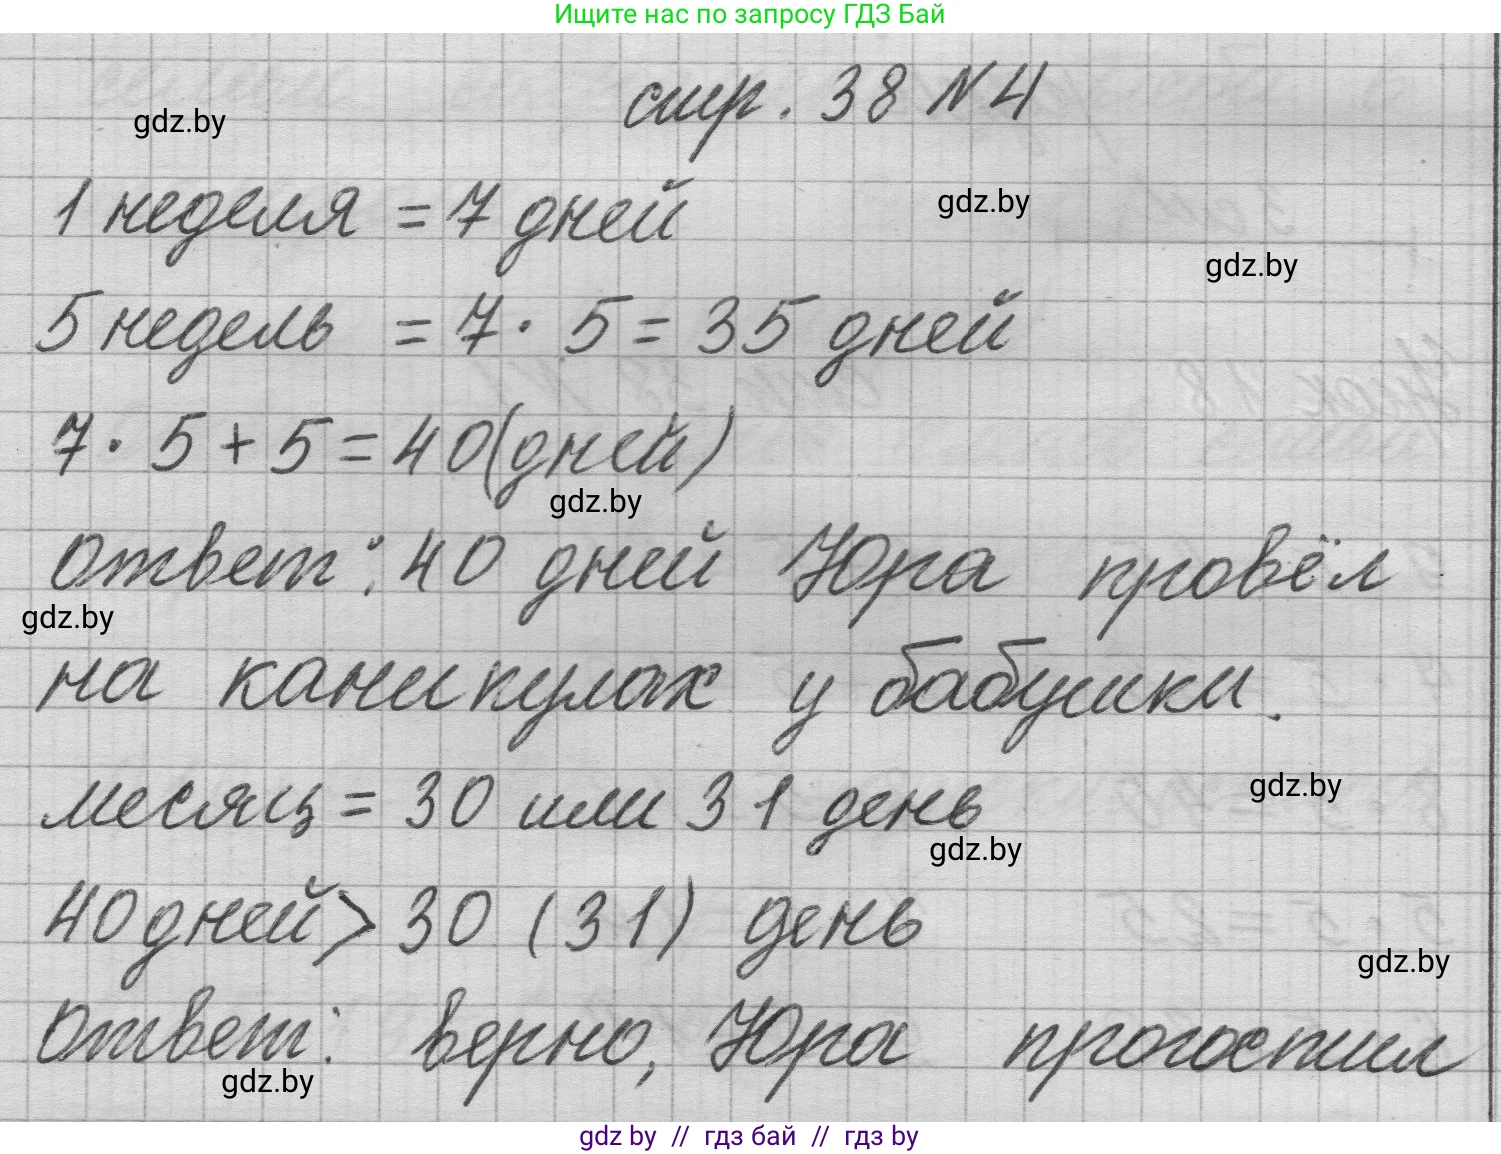 Ищите нас по запросу ГДЗ Бай
стр. 38 N 4
gdz.by
1 неделя = 7 дней
gdz.by
gdz.by
5 недель = 7 · 5 = 35 дней
7 · 5 + 5 = 40 (дней)
gdz.by
ответ: 40 дней Юра провёл
gdz.by
на каникулах у бабушки.
месяц = 30 или 31 день
gdz.by
gdz.by
40 дней > 30 (31) день
gdz.by
ответ: верно, Юра прогостил
gdz.by
gdz by // гдз бай // гдз by